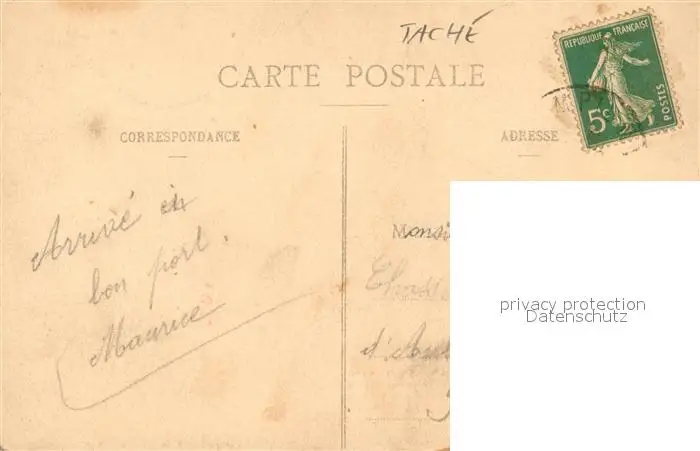 TACHÉ
CARTE POSTALE
REPUBLIQUE FRANÇAISE
5c
POSTES
CORRESPONDANCE
ADRESSE
Arrivé à
bon port.
Maurice
Monsi
d'
privacy protection
Datenschutz